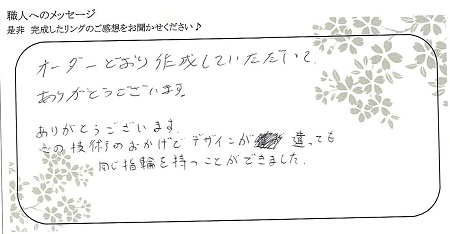 職人へのメッセージ
是非 完成したリングのご感想をお聞かせください♪
オーダーどおり作成していただいて、
ありがとうございます。
ありがとうございます。
この技術のおかげでデザインが 違っても
同じ指輪を持つことができました。